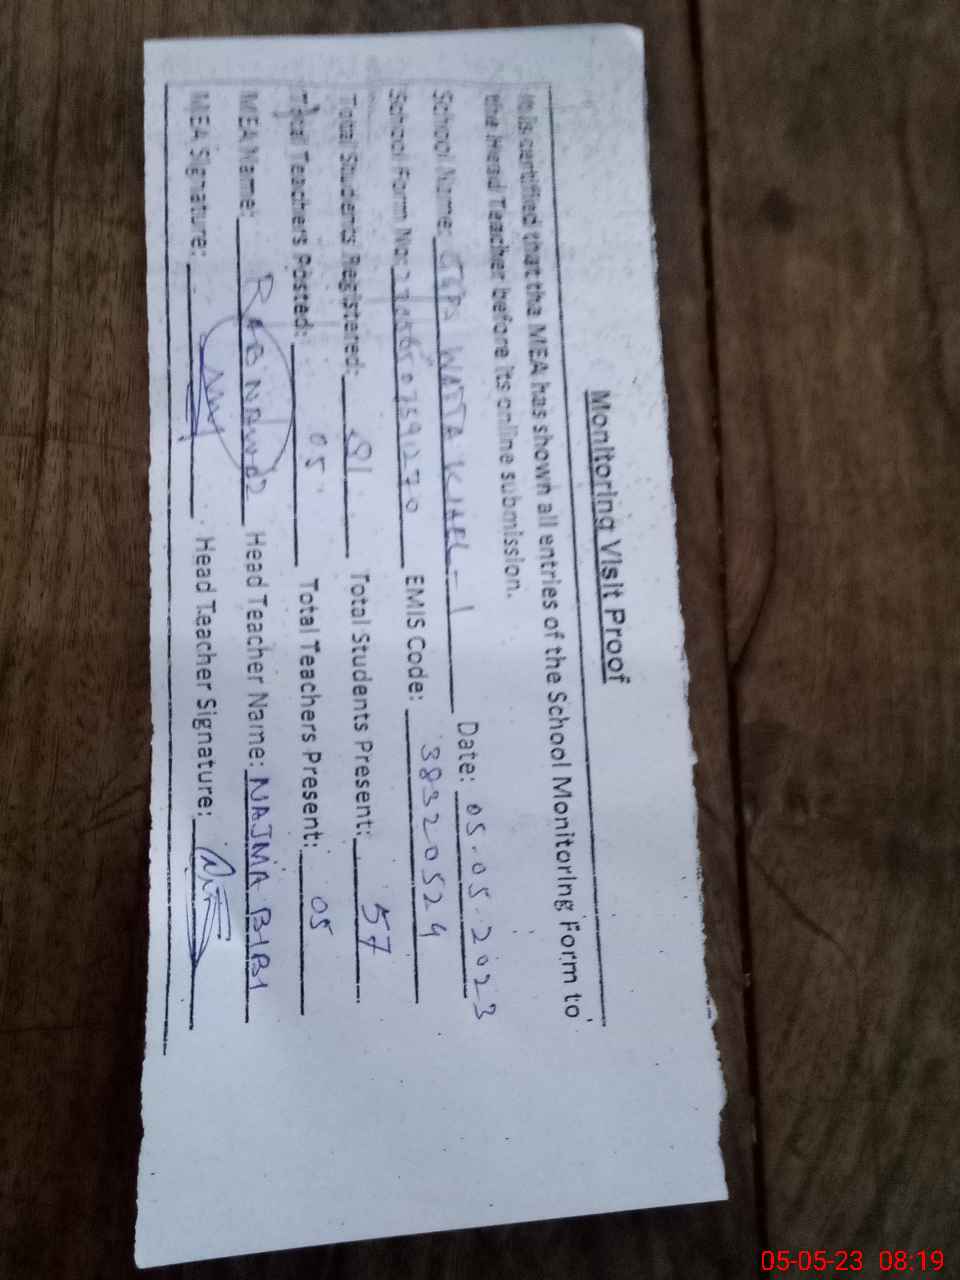 Monitoring Visit Proof
It is certified that the MEA has shown all entries of the School Monitoring Form to
the Head Teacher before its online submission.
School Name: GGPS WATTA KHEL - 1 Date: 05.05.2023
School Form No: EMIS Code: 38320524
Total Students Registered: 81 Total Students Present: 57
Total Teachers Posted: 05 Total Teachers Present: 05
MEA Name: RAB NAWAZ Head Teacher Name: NAJMA BIBI
MEA Signature: Head Teacher Signature:
05-05-23 08:19